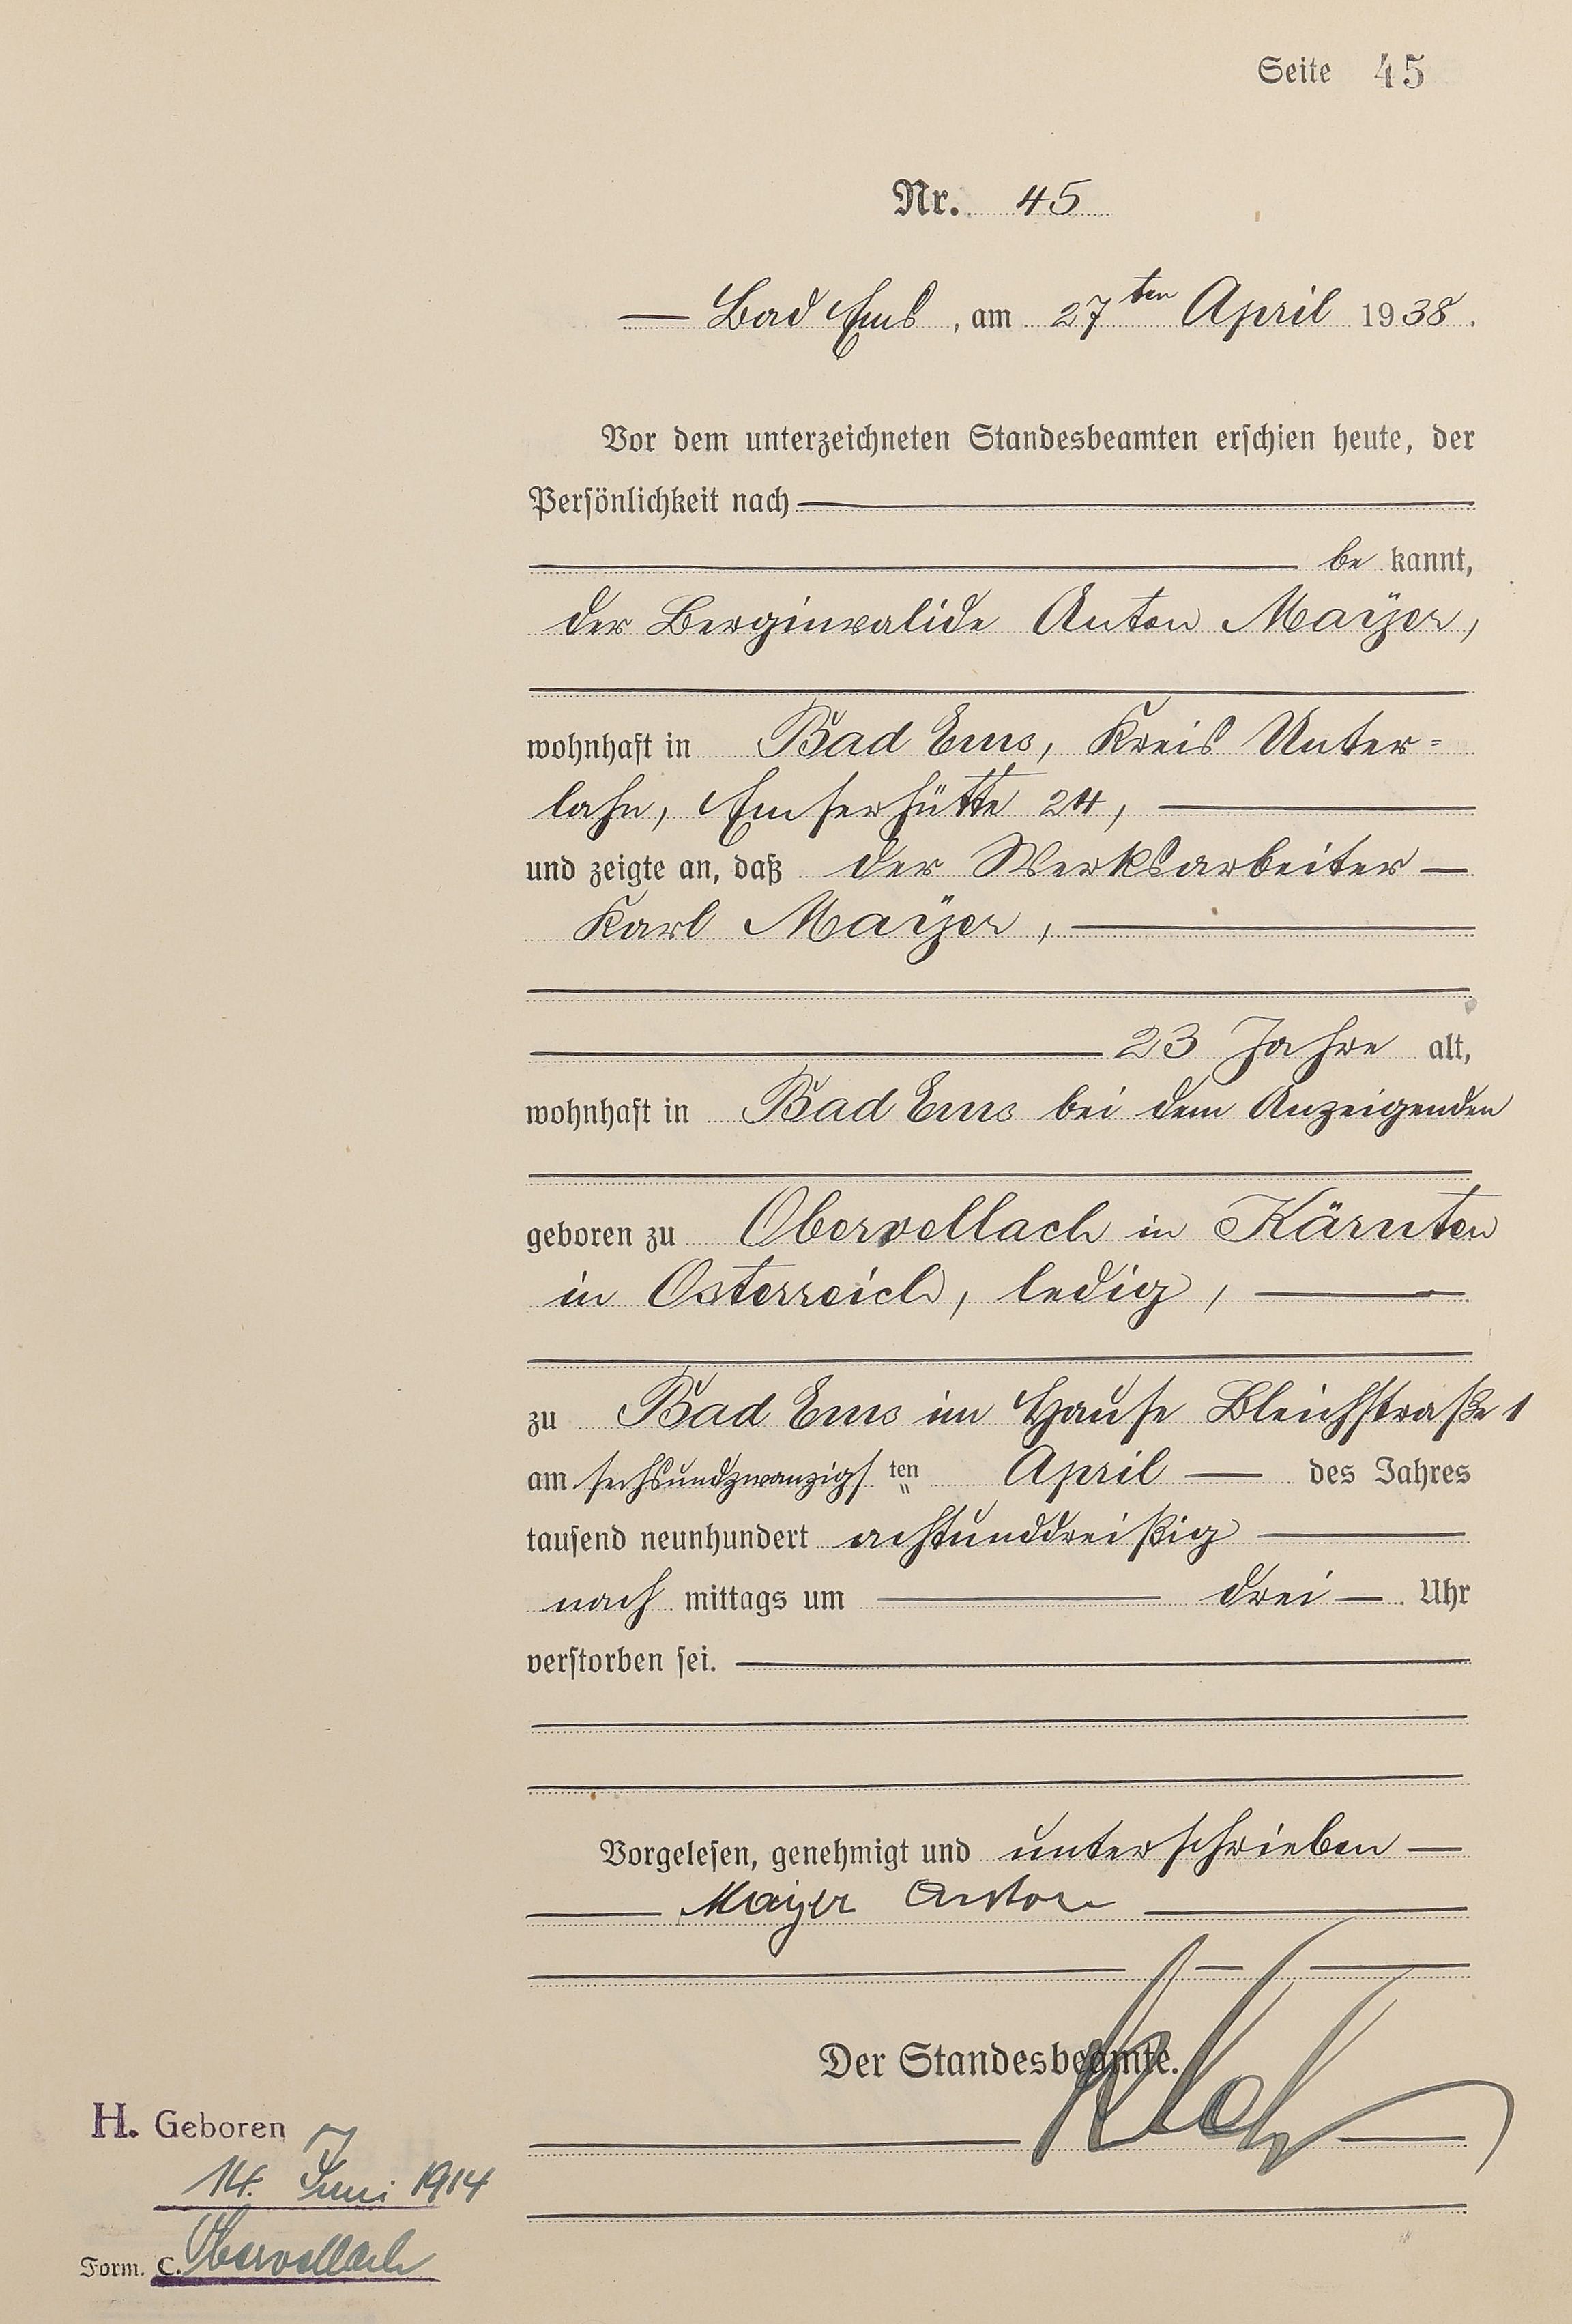 Seite 45
Nr. 45
— Bad Ems, am 27ten April 1938.
Vor dem unterzeichneten Standesbeamten erschien heute, der
Persönlichkeit nach
be kannt,
der Berginvalide Anton Mayer,
wohnhaft in Bad Ems, Kreis Unter=
lahn, Emserhütte 24, —
und zeigte an, daß der Werksarbeiter —
Karl Mayer, —
23 Jahre alt,
wohnhaft in Bad Ems bei dem Anzeigenden
geboren zu Obervellach in Kärnten
in Österreich, ledig, —
zu Bad Ems im Hause Bleichstraße 1
am sechsundzwanzigsten April — des Jahres
tausend neunhundert achtunddreißig —
nach mittags um — drei — Uhr
verstorben sei. —
Vorgelesen, genehmigt und unterschrieben —
— Mayer Anton —
Der Standesbeamte.
H. Geboren
14. Juni 1914
Obervellach
Form. C.